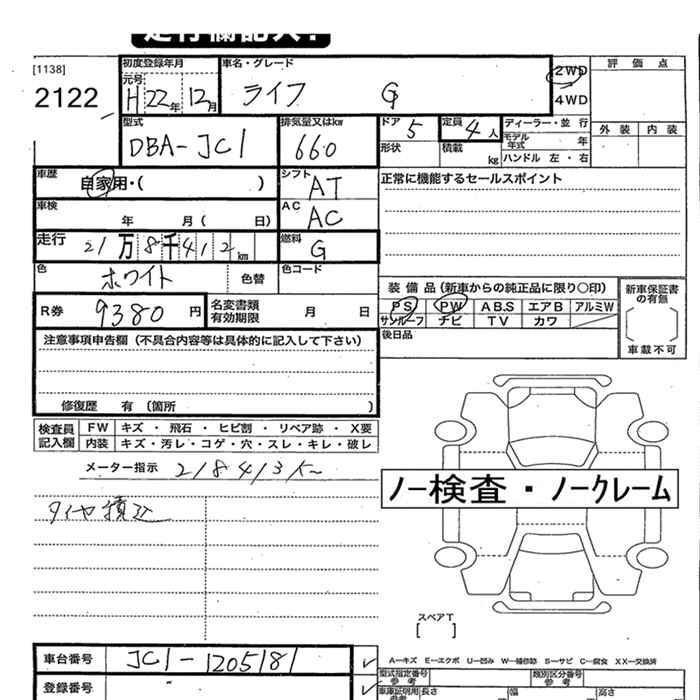 走行欄記入！
[1138]
2122
初度登録年月
元号
H 22年 12月
車名・グレード
ライフ G
2WD
4WD
評価点
外装 内装
型式
DBA-JC1
排気量又はkw
660
ドア 5
形状
定員 4人
積載 kg
ディーラー・並行
モデル年式 年
ハンドル 左・右
車歴
自家用・( )
シフト
AT
正常に機能するセールスポイント
車検
年 月( 日)
AC
AC
走行
21万8千412km
燃料
G
色
ホワイト
色替
色コード
装備品(新車からの純正品に限り○印)
PS PW ABS エアB アルミW
サンルーフ ナビ TV カワ
新車保証書の有無
車載不可
R券 9380円
名変書類有効期限 月 日
後日品
注意事項申告欄(不具合内容等は具体的に記入して下さい)
修復歴 有 〔箇所 〕
検査員記入欄
FW キズ・飛石・ヒビ割・リペア跡・X要
内装 キズ・汚レ・コゲ・穴・スレ・キレ・破レ
メーター指示 218413K
ノー検査・ノークレーム
タイヤ積込
スペアT
[ ]
車台番号 JC1-1205181
登録番号
A…キズ E…エクボ U…凹み W…補修跡 S…サビ C…腐食 XX…交換済
型式指定番号 参考
類別区分番号 参考
車庫証明用 参考
長さ 幅 高さ